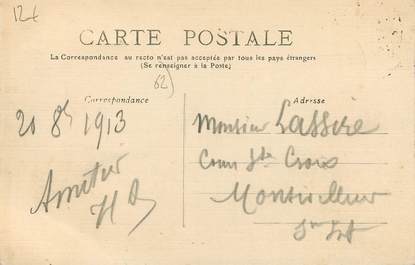 12t
CARTE POSTALE
La Correspondance au recto n'est pas acceptée par tous les pays étrangers
(Se renseigner à la Poste)
62)
Correspondance
Adresse
20 8bre 1913
Monsieur Lassire
Cour Ste Croix
Montivilliers
Amitié
H